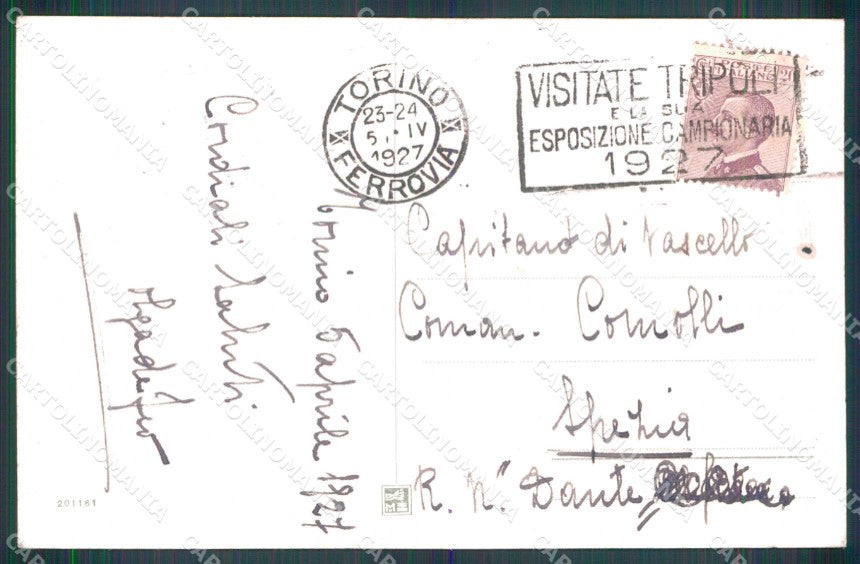 TORINO
23-24
5. IV
1927
FERROVIA
VISITATE TRIPOLI
E LA SUA
ESPOSIZIONE CAMPIONARIA
1927
Torino 5 aprile 1927
Cordiali saluti
Capitano di Vascello
Coman. Comolli
Spezia
R. N. Dante
201161
CARTOLINOMANIA